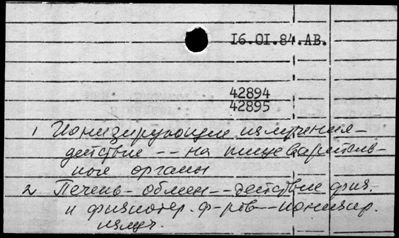 16.01.84.АВ.
42894
42895
1 Ионизирующие излучения-
действие -- на пищеваритель-
ные органы
2 Печень - обмен -- действие физ.
и физиотер. ф-ров -- ионизир.
излуч.